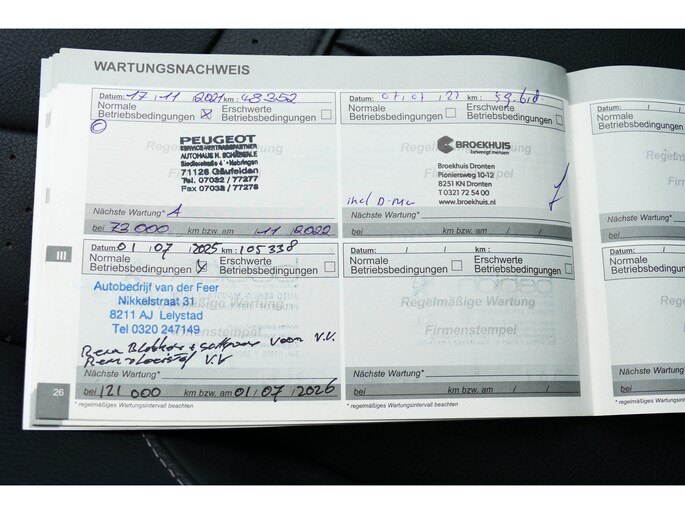 WARTUNGSNACHWEIS
Datum: 17 / 11 / 2021 km: 48352
Normale Betriebsbedingungen
Erschwerte Betriebsbedingungen
Regelmäßige Wartung
PEUGEOT
SERVICE-VERTRAGSPARTNER
AUTOHAUS H. SCHÄBERLE
Siedlerstraße 4 - Nebringen
71126 Gäufelden
Tel. 07032 / 77277
Fax 07032 / 77278
Nächste Wartung* A
bei 73000 km bzw. am /11 /2022
Datum: 07/07/22 km:
Normale Betriebsbedingungen
Erschwerte Betriebsbedingungen
BROEKHUIS
beweegt mensen
Broekhuis Dronten
Pioniersweg 10-12
8251 KN Dronten
T 0321 72 54 00
www.broekhuis.nl
Nächste Wartung*
bei km bzw. am / /
III
Datum: 01 / 07 2025 km: 105338
Normale Betriebsbedingungen
Erschwerte Betriebsbedingungen
Autobedrijf van der Feer
Nikkelstraat 31
8211 AJ Lelystad
Tel 0320 247149
Rem Blokken + voor V.V.
Remvloeistof V.V
Nächste Wartung*
bei 121 000 km bzw. am 01/ 07 /2026
Datum: / / km:
Normale Betriebsbedingungen
Erschwerte Betriebsbedingungen
Regelmäßige Wartung
Firmenstempel
Nächste Wartung*
bei km bzw. am / /
26
* regelmäßiges Wartungsintervall beachten
* regelmäßiges Wartungsintervall beachten
Datum: / /
Normale
Betriebsbedingungen
Nächste Wartung*
bei
Datum: /
Normale
Betriebsbedingungen
Nächste Wartung*
bei
* regelmäßiges Wartungsinter